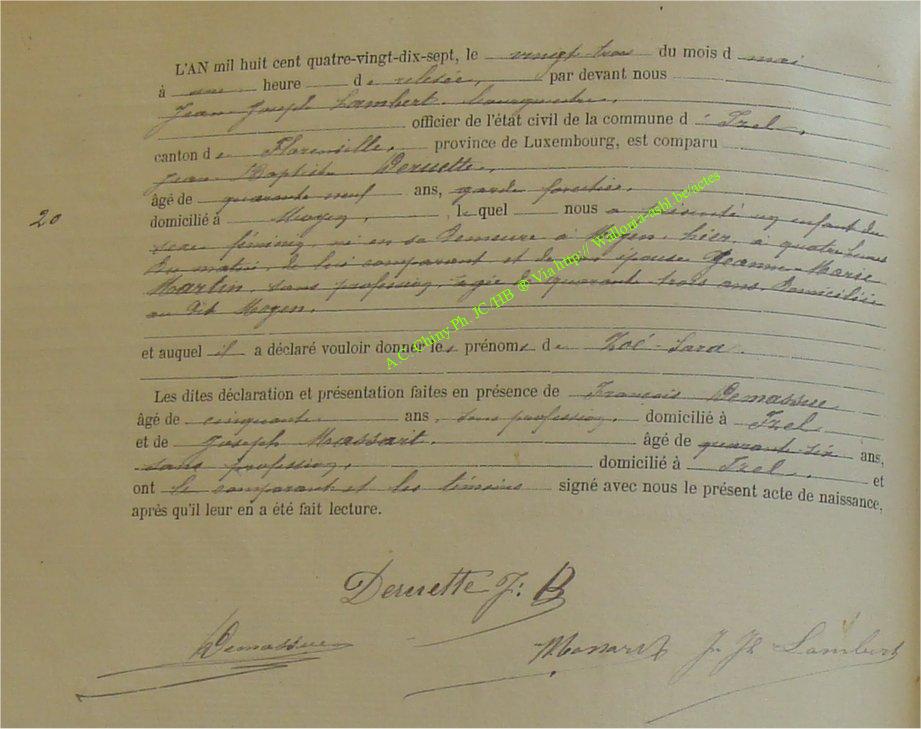 L'AN mil huit cent quatre-vingt-dix-sept, le vingt trois du mois d mai
à une heure de relevée, par devant nous
Jean Joseph Lambert, bourgmestre,
officier de l'état civil de la commune d' Izel,
canton de Florenville, province de Luxembourg, est comparu
Jean Baptiste Deruette,
âgé de quarante neuf ans, garde forestier,
domicilié à Moyen, lequel nous a présenté un enfant du
20
sexe féminin, né en sa demeure à Moyen, hier, à quatre heures
du matin, de lui comparant et de son épouse Jeanne-Marie
Martin, sans profession, âgée de quarante trois ans, domiciliée
au dit Moyen.
A.C. Chiny Ph. JC/HB ® Via http:// Wallonia-asbl.be/actes
et auquel il a déclaré vouloir donner les prénoms de Zoé-Sara.
Les dites déclaration et présentation faites en présence de François Demassue
âgé de cinquante ans, sans profession, domicilié à Izel
et de Joseph Massart. âgé de quarante-six ans,
sans profession, domicilié à Izel, et
ont le comparant et les témoins signé avec nous le présent acte de naissance,
après qu'il leur en a été fait lecture.
Deruette J: B
Demassue Massart J. Jh Lambert